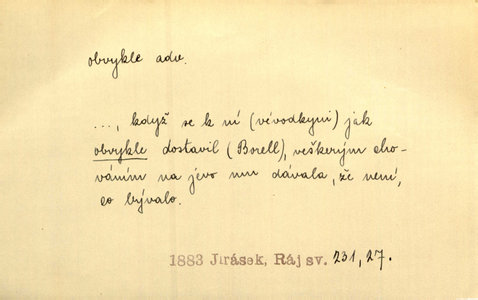 obvykle adv.
..., když se k ní (vévodkyni) jak
obvykle dostavil (Borell), veškerým cho-
váním na jevo mu dávala, že není,
co bývalo.
1883 Jirásek, Ráj sv. 231, 27.